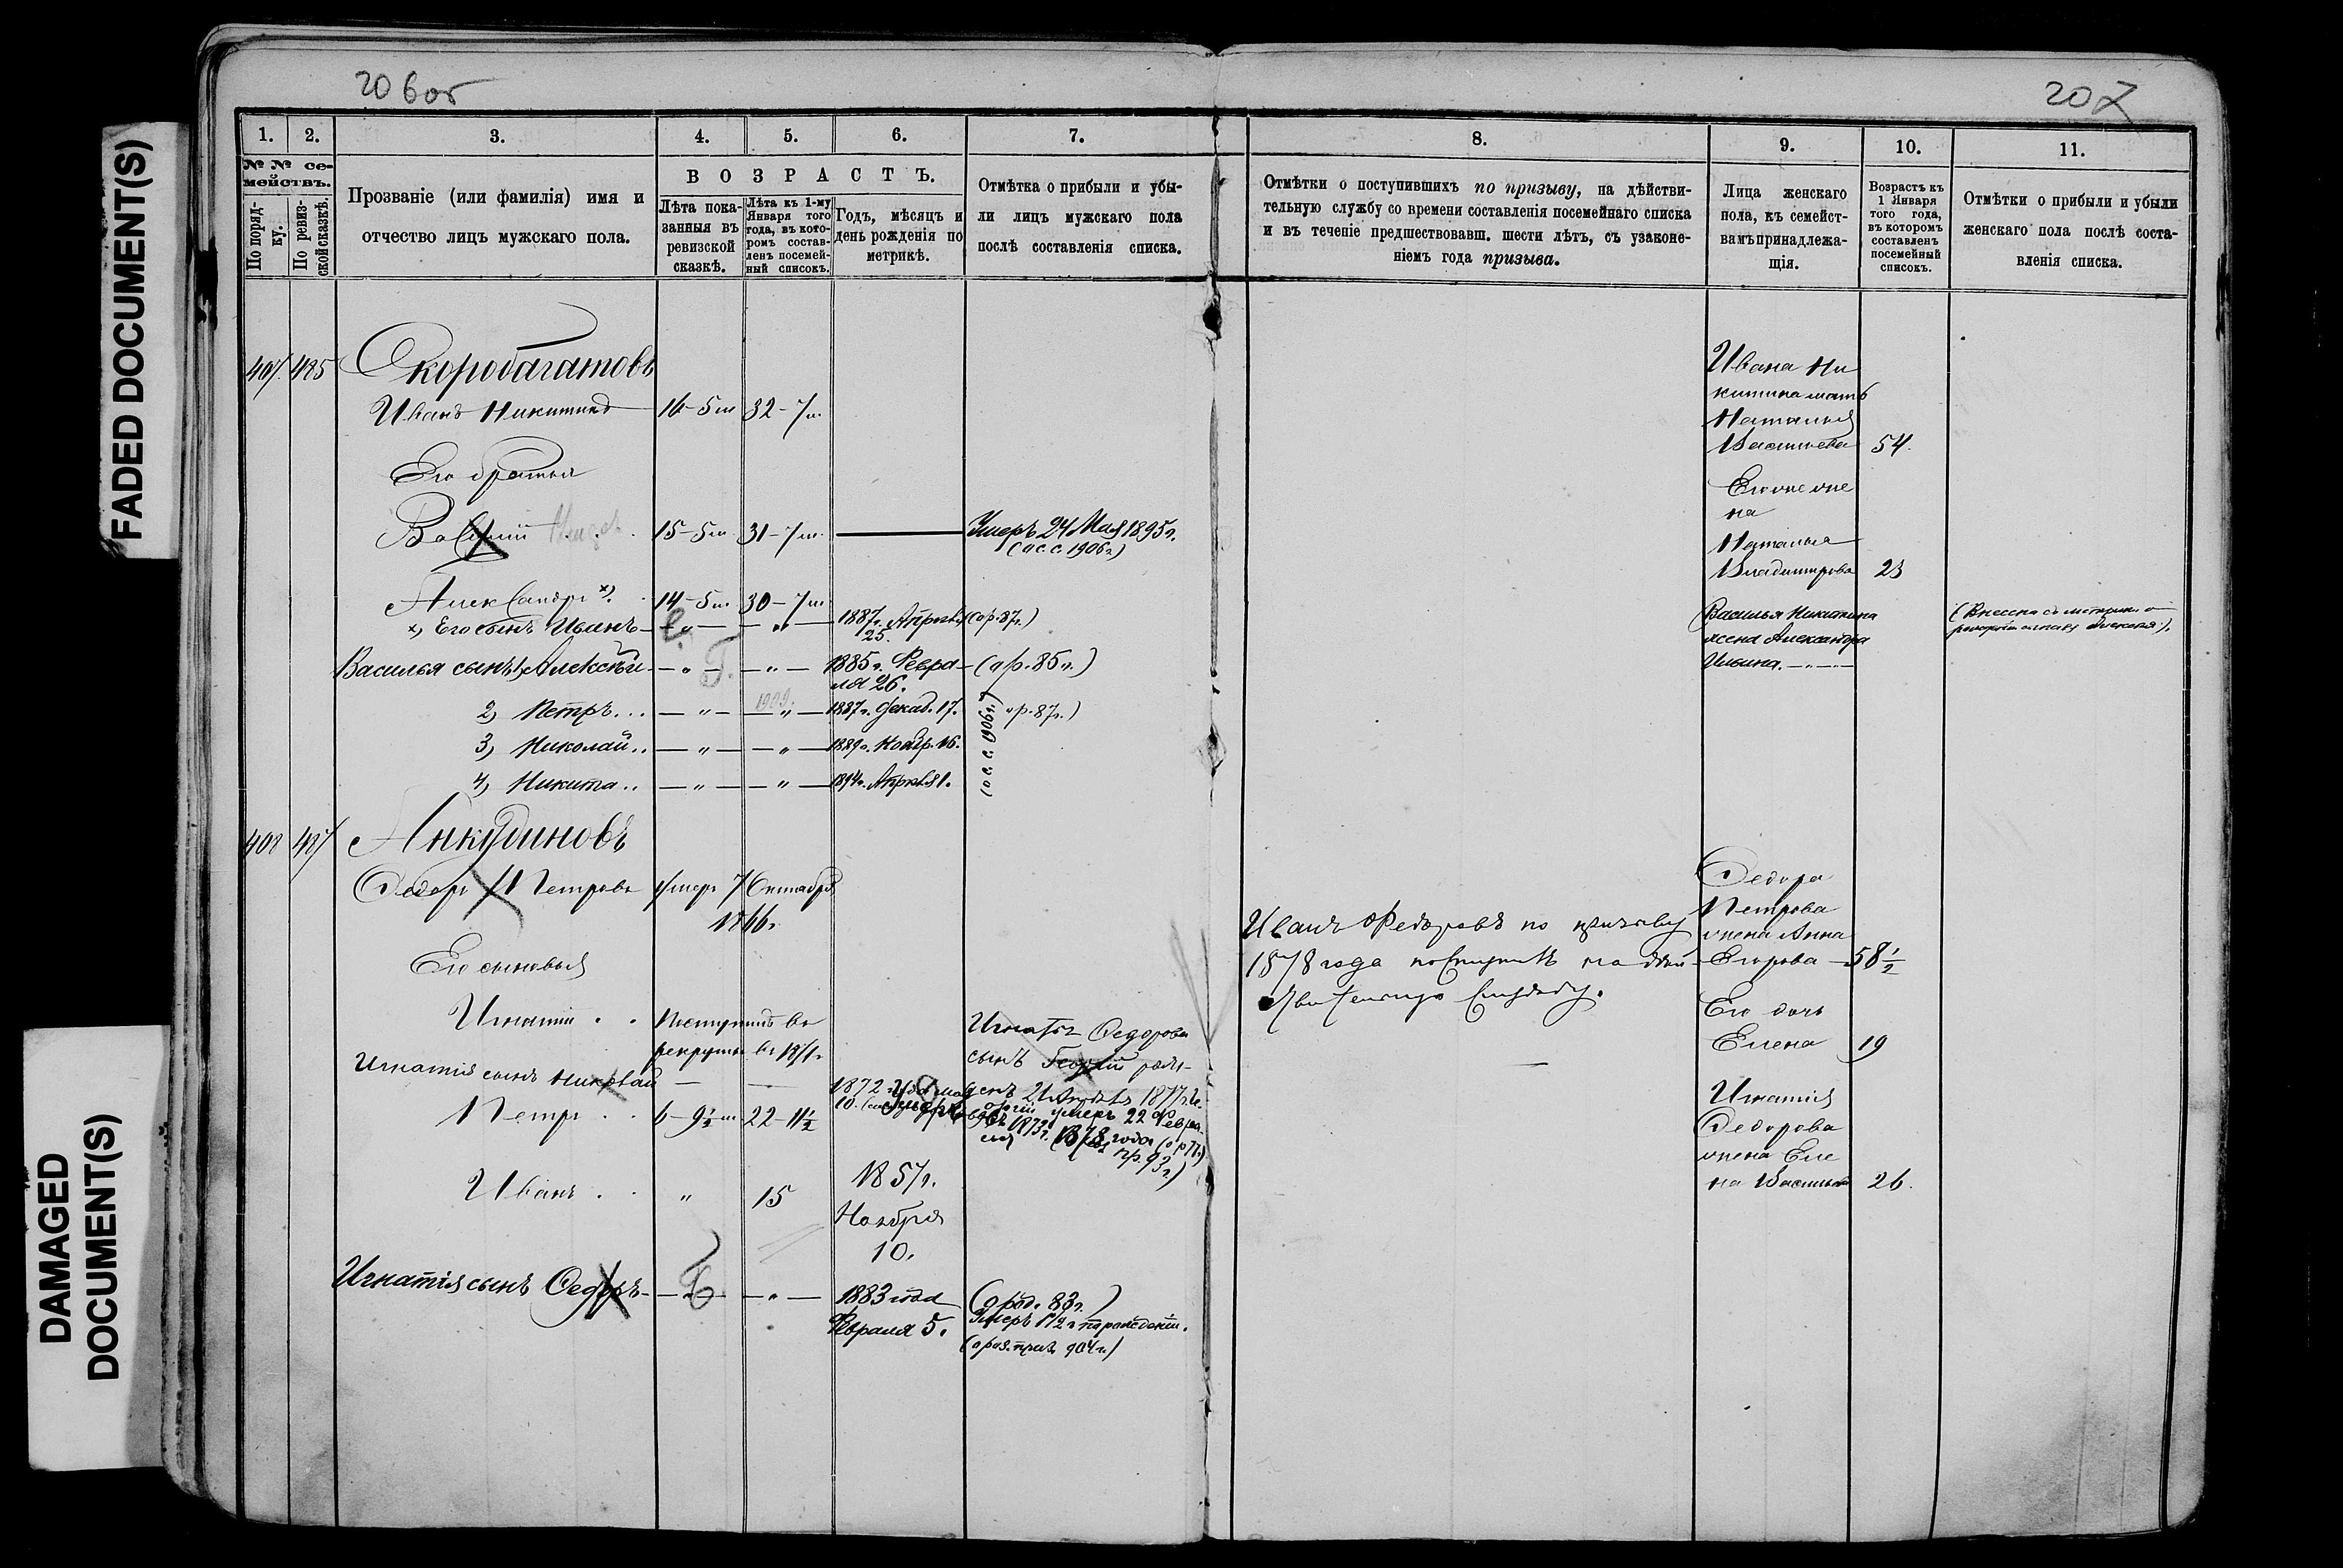 FADED DOCUMENT(S)
DAMAGED
DOCUMENT(S)
20 6 об
207
1. 2. 3. 4. 5. 6. 7.
№ № се-
мействъ.
По поряд-
ку.
По ревиз-
ской сказкѣ.
Прозваніе (или фамилія) имя и
отчество лицъ мужскаго пола.
ВОЗРАСТЪ.
Лѣта пока-
занныя въ
ревизской
сказкѣ.
Лѣта къ 1-му
Января того
года, въ кото-
ромъ состав-
ленъ посемей-
ный списокъ.
Годъ, мѣсяцъ и
день рожденія по
метрикѣ.
Отмѣтка о прибыли и убы-
ли лицъ мужскаго пола
послѣ составленія списка.
407. 485 Скоробагатовъ
Иванъ Никитинъ 16-5 м 32-7 м.
Его братья
Василий 15-5 м 31-7 м. Умеръ 24 Мая 1895 г.
(п с. с. 1906 г.)
Александръ х) 14-5 м. 30-7 м
х) Его сынъ Иванъ — „ — „ — 1887 г. Апрѣля (о р. 87 г.)
25.
Василья сынъ 1, Алексѣй — „ — — „ — 1885 г. Февра- (о р. 85 г.)
ля 26.
2) Петръ... — „ — — „ — 1887 г. Декаб. 17. о р. 87 г.)
3) Николай.. — „ — — „ — 1889 г. Ноябр. 16.
4) Никита.. — „ — — „ — 1894 г. Апрѣля 1.
(о с. с. 1906 г.)
408 487 Анкудиновъ
Федоръ Петровъ умеръ 7 Октября
1866 г.
Его сыновья
Игнатій . . Поступилъ въ
рекруты въ 1871 г
Игнатія сынъ Николай — — 1872
Игнатія Федорова
сынъ Георгій рож-
денъ 21 Апрѣля 1877 г.
умеръ 22 Февра-
ля 1878 года (о р 77 г.)
пр. 93 г.)
Петръ . . 6-9½ м 22-11½
Иванъ . . „ 15 1857 г.
Ноября
10.
Игнатія сынъ Федоръ — — „ — 1883 года (о род. 83 г.)
Февраля 5. Умеръ 1½ г по рожденіи.
904 г)
8. 9. 10. 11.
Отмѣтки о поступившихъ по призыву, на дѣйстви-
тельную службу со времени составленія посемейнаго списка
и въ теченіе предшествовавш. шести лѣтъ, съ узаконе-
ніемъ года призыва.
Лица женскаго
пола, къ семейст-
вамъ принадлежа-
щія.
Возрастъ къ
1 Января
того года,
въ которомъ
составленъ
посемейный
списокъ.
Отмѣтки о прибыли и убыли
женскаго пола послѣ соста-
вленія списка.
Ивана Ни
китина мать
Наталья
Васильева 54.
Его жена
Наталья
Владимирова 23
Василья Никитина
жена Александра
Ильина. — „ —
(Внесена съ метрики о
рожденіи сына Алексѣя).
Иванъ Федоровъ по призыву
1878 года поступилъ на дѣй-
ствительную службу.
Федора
Петрова
жена Анна
Егорова 58½
Его дочь
Елена 19
Игнатія
Федорова
жена Еле
на Васильева 26.